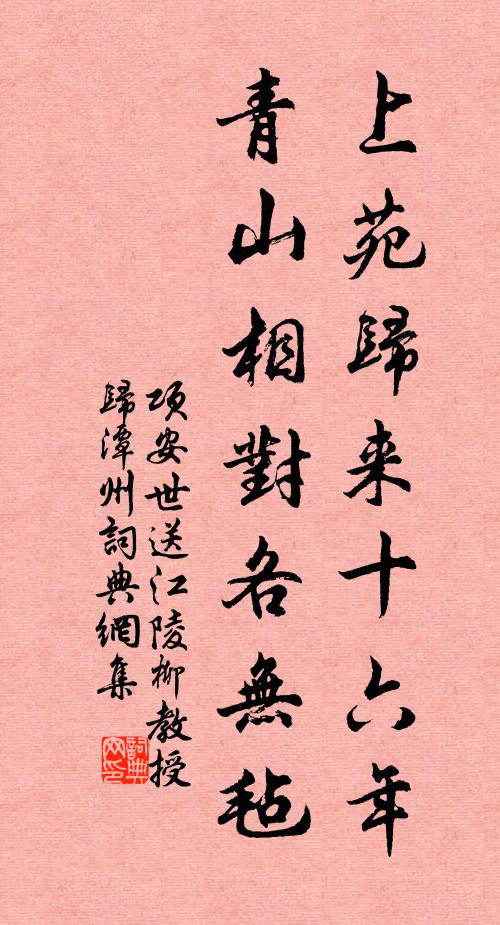 上苑歸来十六年
青山相對各無氈
項安世送江陵柳教授
歸潭州詞典網集
詞典网印